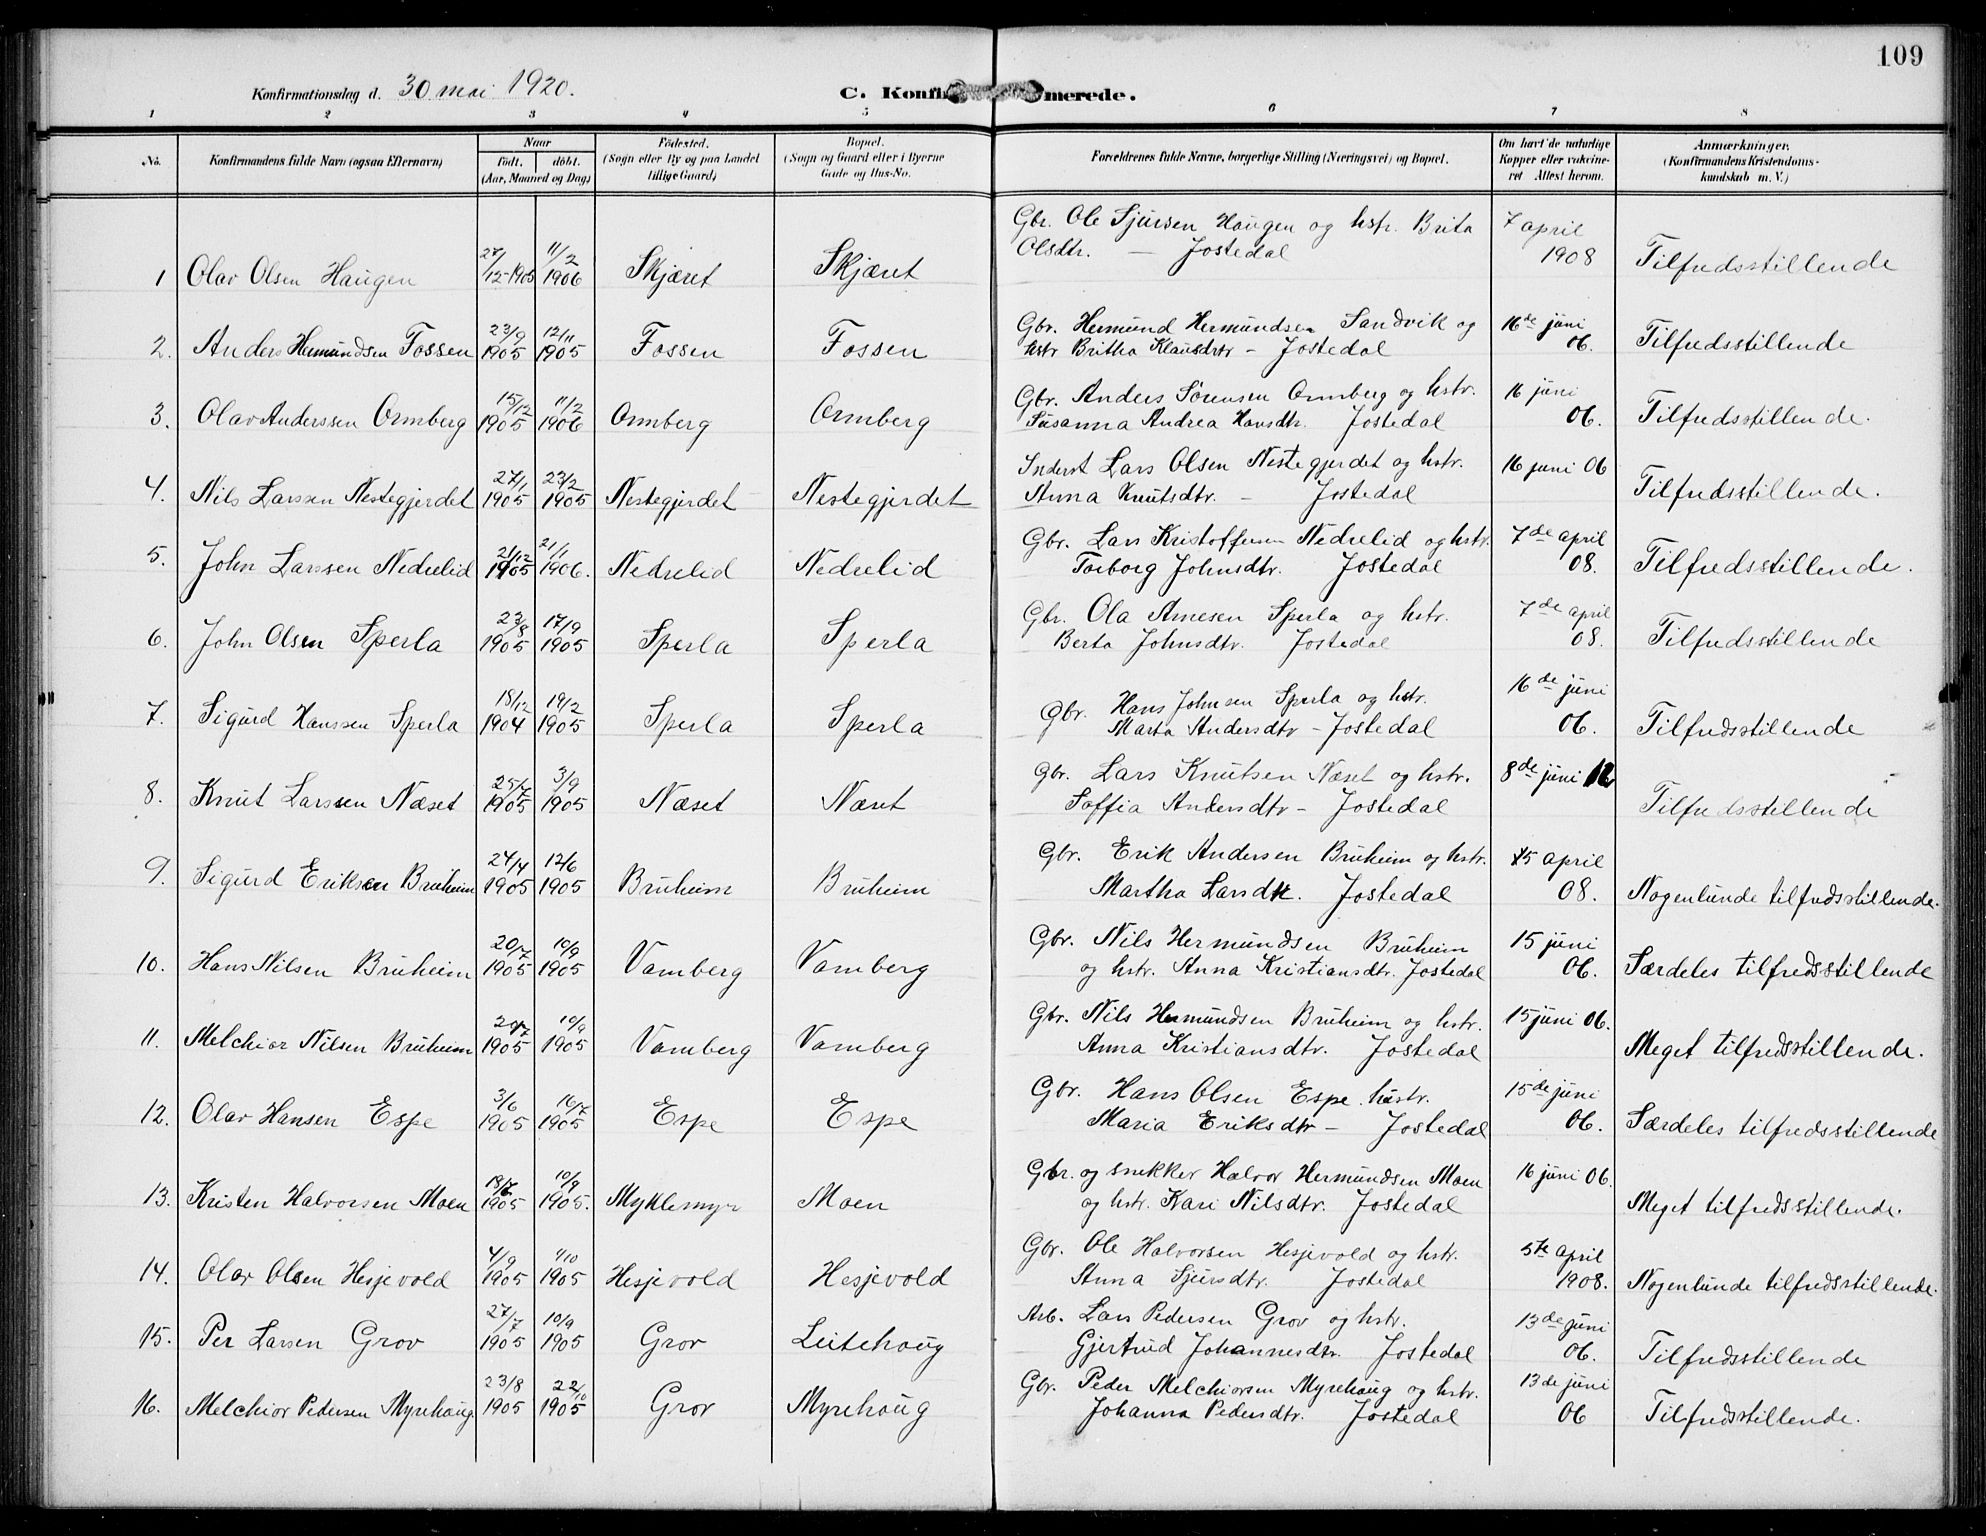 109
Konfirmationsdag d. 30 mai 1920.
C. Konfi merede.
1 2 3 4 5 6 7 8
No. Konfirmandens fulde Navn (ogsaa Efternavn) Naar født. døbt. (Aar, Maaned og Dag) Fødested. (Sogn eller By og paa Landet tillige Gaard) Bopæl. (Sogn og Gaard eller i Byerne Gade og Hus-No. Forældrenes fulde Navne, borgerlige Stilling (Næringsvei) og Bopæl. Om havt de naturlige Kopper eller vakcineret Attest herom. Anmærkninger. (Konfirmandens Kristendomskundskab m. V.)
1 Olav Olsen Haugen 27/12-1905 11/2 1906 Skjæret Skjæret Gbr. Ole Sjursen Haugen og hstr. Brita Olsdtr. — Jostedal 7 april 1908 Tilfredsstillende
2. Anders Hermundsen Fossen 23/9 1905 12/11 1905 Fossen Fossen Gbr. Hermund Hermundsen Sandvik og hstr Britha Klausdtr – Jostedal 16de juni 06. Tilfredsstillende
3. Olav Anderssen Ormberg 15/12 1905 11/2 1906 Ormberg Ormberg Gbr. Anders Sørensen Ormberg og hstr. Susanna Andrea Hansdtr. Jostedal 16 juni 06. Tilfredsstillende.
4. Nils Larssen Nestegjerdet 27/1 1905 23/2 1905 Nestegjerdet Nestegjerdet Inderst Lars Olsen Nestegjerdet og hstr. Anna Knutsdtr. – Jostedal 16 juni 06 Tilfredsstillende.
5. John Larssen Nedrelid 21/12 1905 21/1 1906. Nedrelid Nedrelid Gbr. Lars Kristoffersen Nedrelid og hstr. Torborg Johnsdtr. Jostedal 7de april 08. Tilfredsstillende.
6. John Olsen Sperla 23/8 1905 17/9 1905 Sperla Sperla Gbr. Ola Arnesen Sperla og hstr. Berta Johnsdtr. Jostedal 7de april 08. Tilfredsstillende
7. Sigurd Hanssen Sperla 18/12 1904 19/2 1905 Sperla Sperla Gbr. Hans Johnsen Sperla og hstr. Marta Andersdtr – Jostedal 16de juni 06. Tilfredsstillende
8. Knut Larssen Næset 25/7 1905 3/9 1905 Næset Næset Gbr. Lars Knutsen Næset og hstr. Soffia Andersdtr – Jostedal 8de juni 12 Tilfredsstillende
9. Sigurd Eriksen Bruheim 24/4 1905 12/6 1905 Bruheim Bruheim Gbr. Erik Andersen Bruheim og hstr. Martha Larsdtr. Jostedal april 08. Nogenlunde tilfredsstillende.
10. Hans Nilsen Bruheim 20/7 1905 10/9 1905 Vamberg Vamberg Gbr. Nils Hermundsen Bruheim og hstr. Anna Kristiansdtr. Jostedal 15 juni 06. Særdeles tilfredsstillende
11. Melchior Nilsen Bruheim 20/7 1905 10/9 1905 Vamberg Vamberg Gbr. Nils Hermundsen Bruheim og hstr. Anna Kristiansdtr. Jostedal 15 juni 06. Meget tilfredsstillende.
12. Olav Hansen Espe 3/6 1905 16/7 1905 Espe Espe Gbr. Hans Olsen Espe. hustr. Maria Eriksdtr – Jostedal 15de juni 06. Særdeles tilfredsstillende
13. Kristen Halvorsen Moen 1905 10/9 1905. Myklemyr Moen Gbr. og snekker Halvor Hermundsen Moen og hstr. Kari Nilsdtr. Jostedal 16 juni 06. Meget tilfredsstillende.
14. Olav Olsen Hesjevold 4/9 1905 1/10 1905 Hesjevold Hesjevold Gbr. Ole Halvorsen Hesjevold og hstr. Anna Sjursdtr. Jostedal 5te april 1908. Nogenlunde tilfredsstillende.
15. Per Larsen Grov 27/7 1905 10/9 1905 Grov Leitehaug Arb. Lars Pedersen Grov og hstr. Gjertrud Johannesdtr. Jostedal 13de juni 06. Tilfredsstillende
16. Melchior Pedersen Myrehaug. 23/8 1905 22/10 1905 Grov Myrehaug Gbr. Peder Melchiorsen Myrehaug og hstr. Johanna Pedersdtr. Jostedal 13de juni 06 Tilfredsstillende.